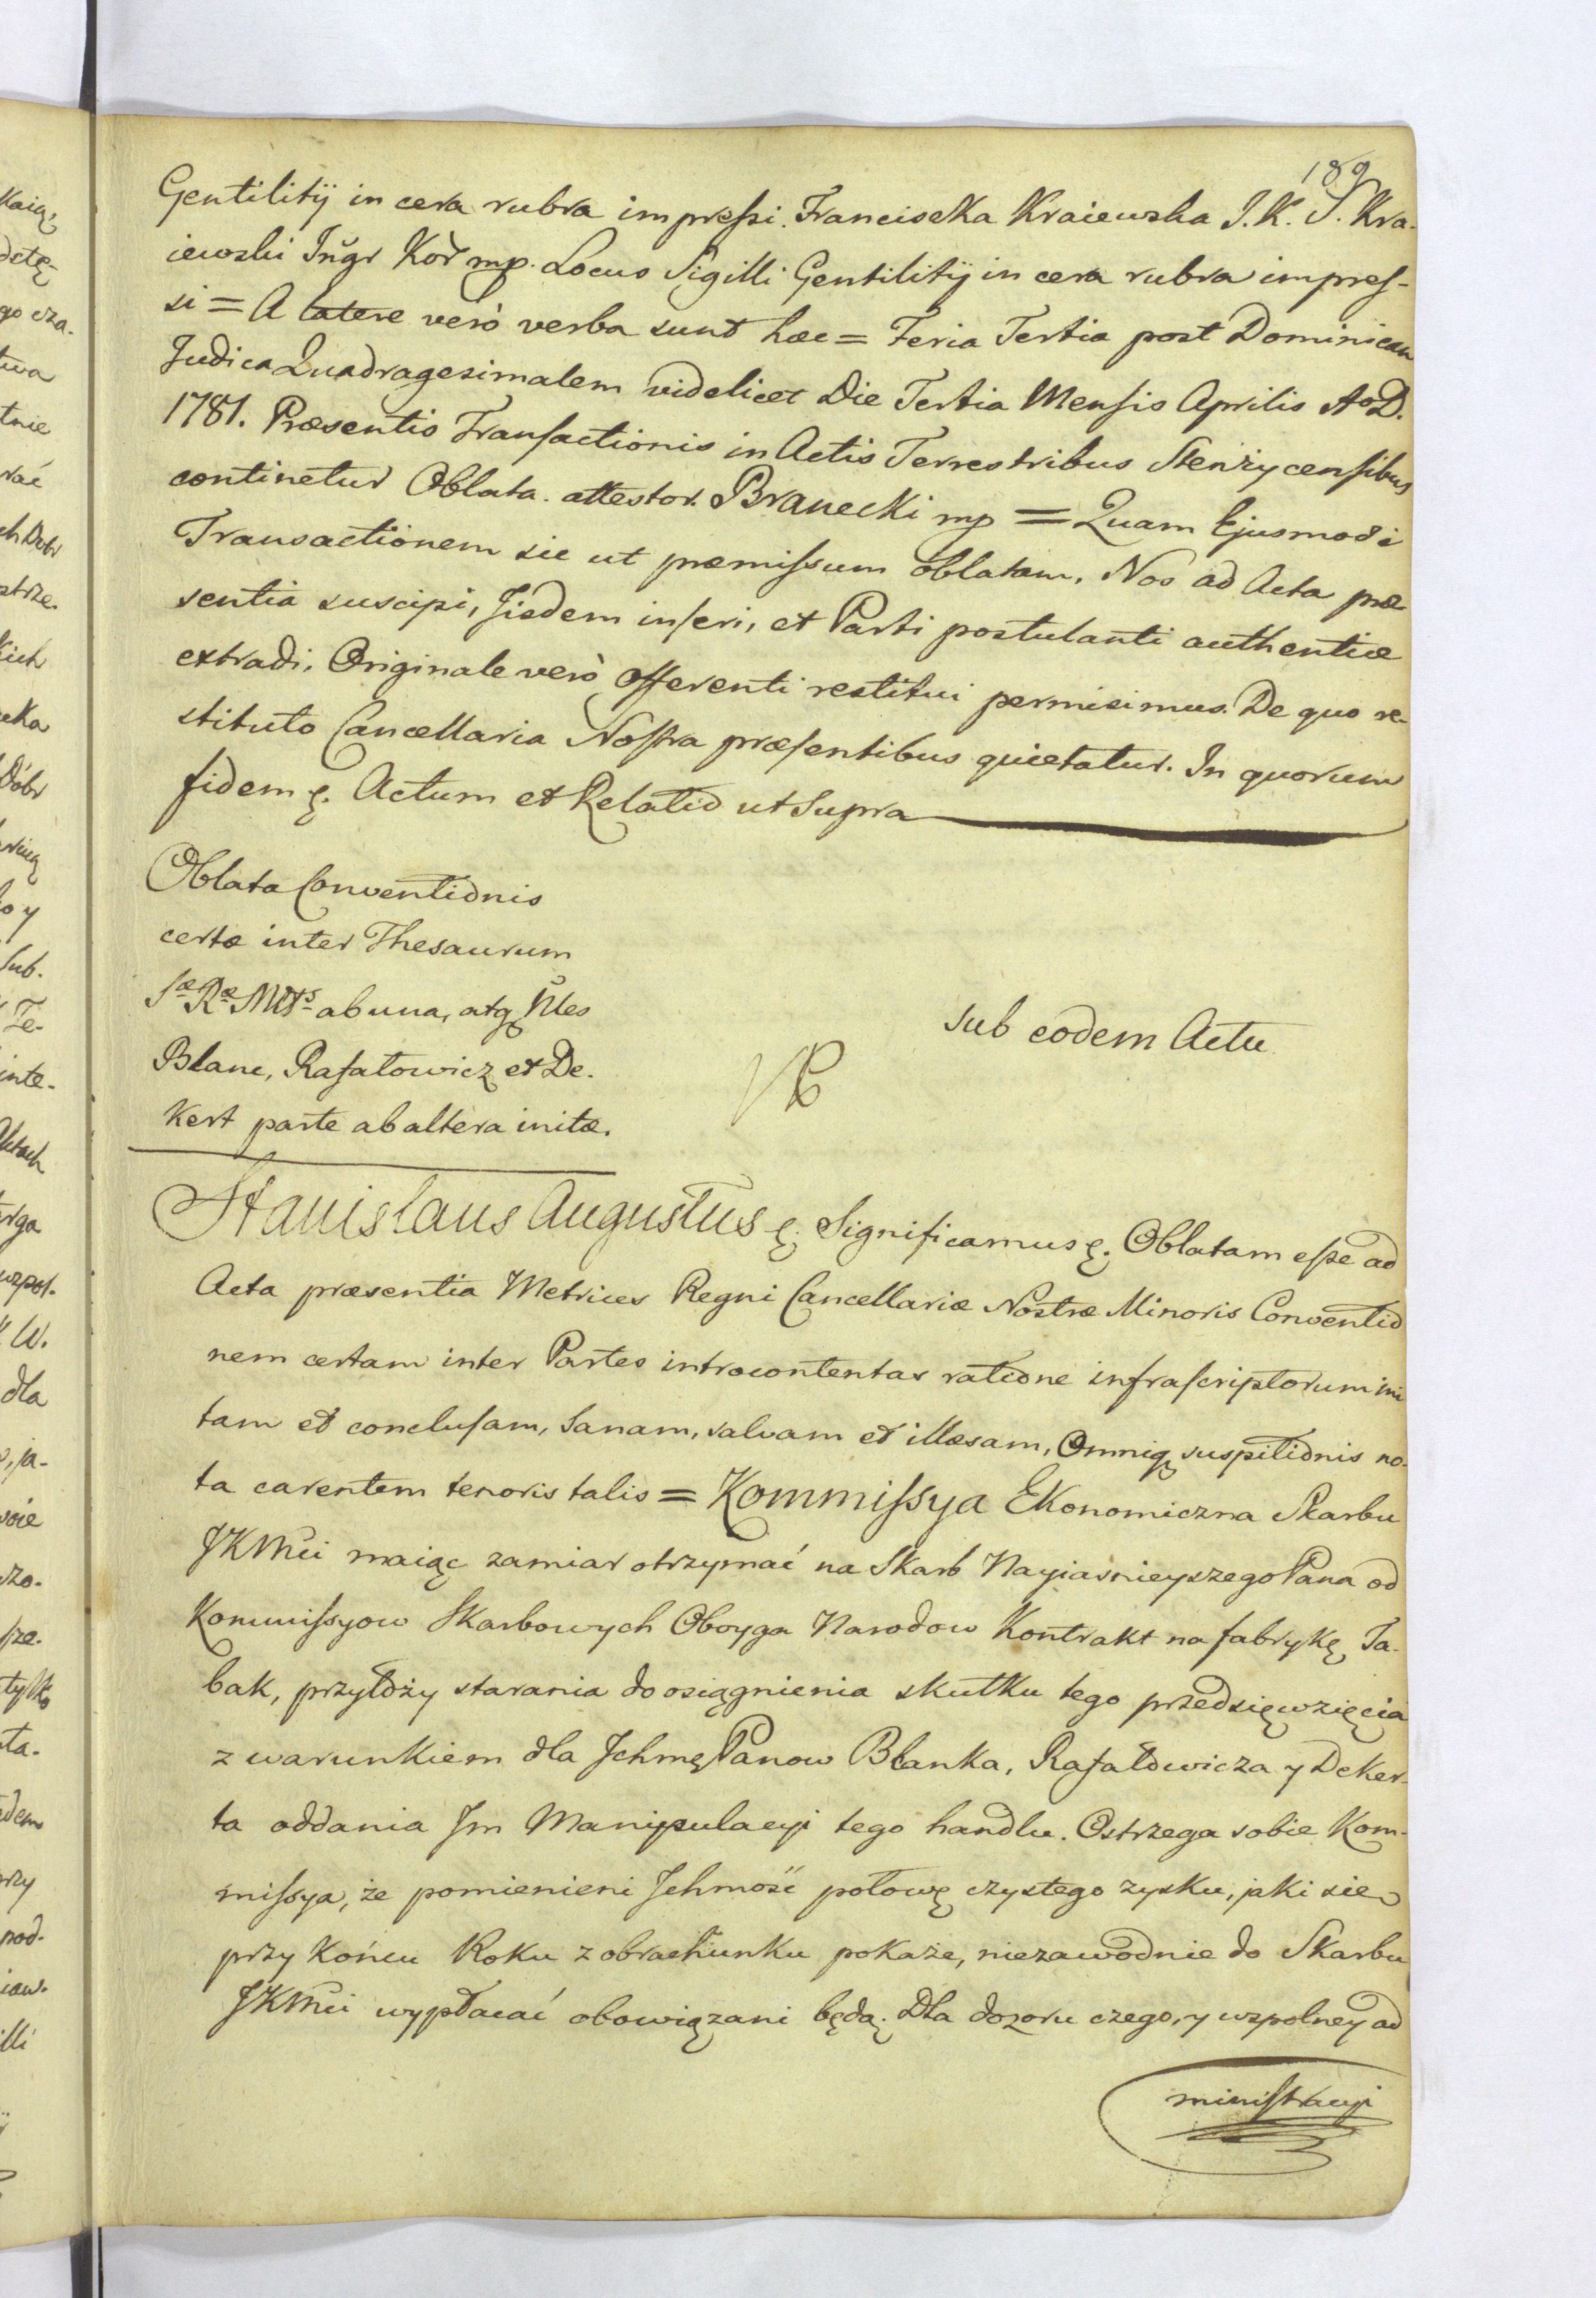 189
Gentilitij in cera rubra impressi. Franciszka Kraiewska J. K. S. Kra-
iewski Ingr Kor mp. Locus Sigilli Gentilitij in cera rubra impres-
si = A latere verò verba sunt hæc = Feria Tertia post Dominicam
Judica Quadragesimalem videlicet Die Tertia Mensis Aprilis AoD.
1781. Præsentis Transactionis in Actis Terrestribus Stenżycensibus
continetur Oblata. attestor. Branecki mp = Quam Ejusmodi
Transactionem sic ut præmissum oblatam, Nos ad Acta præ
sentia suscipi, Jisdem inseri, et Parti postulanti authentice
extradi, Originale verò Offerenti restitui permisimus. De quo re-
stituto Cancellaria Nostra præsentibus quietatur. In quorum
fidem ę. Actum et Relatio ut Supra
Oblata Conventionis
certæ inter Thesaurum
Sæ Ræ Mtts ab una, atq Nles
Blanc, Rafałowicz et De-
kert parte ab altera initæ.
sub eodem Actu
Stanislaus Augustus ę. Significamus ę. Oblatam esse ad
Acta præsentia Metrices Regni Cancellariæ Nostræ Minoris Conventio
nem certam inter Partes introcontentas ratione infrascriptorum ini
tam et conclusam, Sanam, salvam et illæsam, Omniq suspitionis no-
ta carentem tenoris talis = Kommissya Ekonomiczna Skarbu
JKMci maiąc zamiar otrzymać na Skarb Nayiasnieyszego Pana od
Kommissyow Skarbowych Oboyga Narodow Kontrakt na fabrykę Ta-
bak, przyłoży starania do osiągnienia skutku tego przedsięwzięcia
z warunkiem dla Jchmę Panow Blanka, Rafałowicza y Deker-
ta oddania Jm Manipulacyi tego handlu. Ostrzega sobie Kom-
missya, że pomienieni Jchmość połowę czystego zysku, jaki sie
przy Końcu Roku z obrachunku pokaże, niezawodnie do Skarbu
JKMci wypłacać obowiązani będą. Dla dozoru czego, y wspolney ad
ministracyi